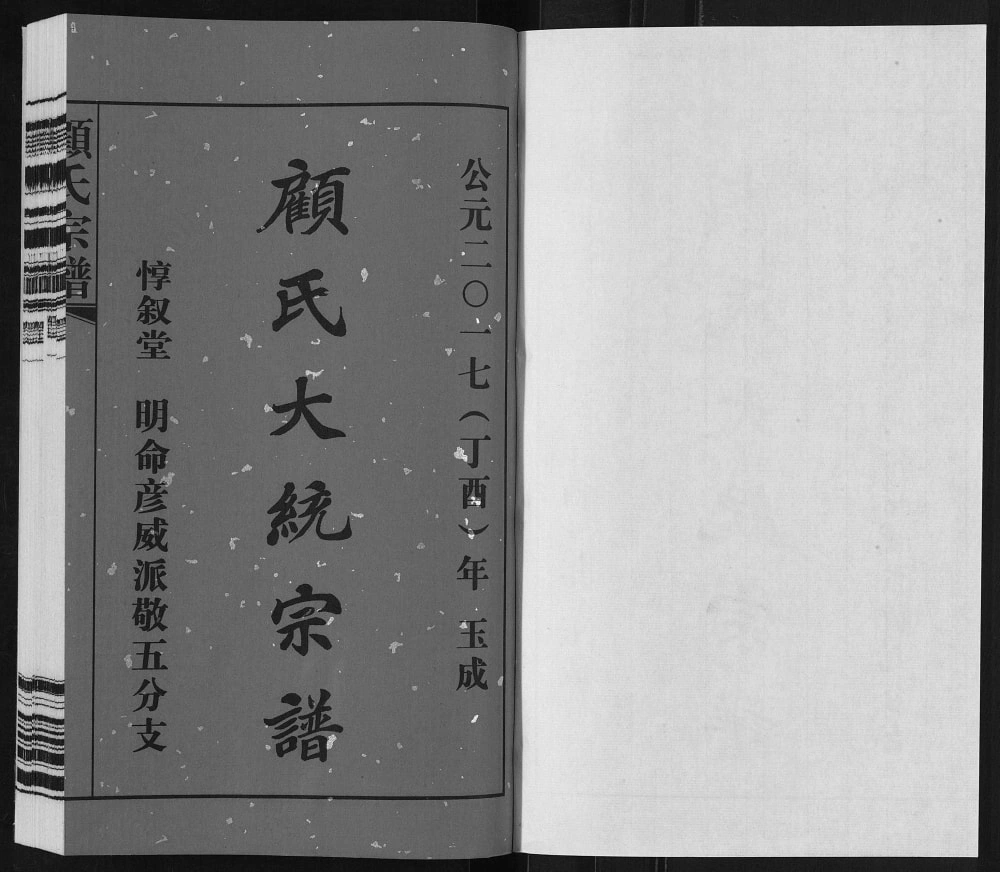 公元二〇一七（丁酉）年 玉成
顧氏大統宗譜
惇叙堂 明命彦威派敬五分支
顧氏宗譜